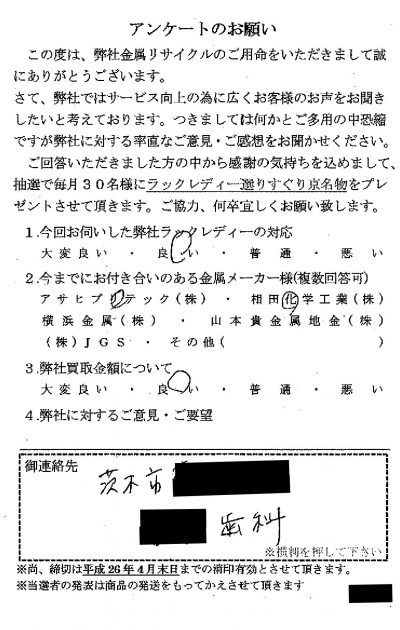 アンケートのお願い
この度は、弊社金属リサイクルのご用命をいただきまして誠
にありがとうございます。
さて、弊社ではサービス向上の為に広くお客様のお声をお聞き
したいと考えております。つきましては何かとご多用の中恐縮
ですが弊社に対する率直なご意見・ご感想をお聞かせください。
ご回答いただきました方の中から感謝の気持ちを込めまして、
抽選で毎月30名様にラックレディー選りすぐり京名物をプレ
ゼントさせて頂きます。ご協力、何卒宜しくお願い致します。
1.今回お伺いした弊社ラックレディーの対応
大変良い ・ 良い ・ 普通 ・ 悪い
2.今までにお付き合いのある金属メーカー様(複数回答可)
アサヒプリテック(株) ・ 相田化学工業(株)
横浜金属(株) ・ 山本貴金属地金(株)
(株)JGS ・ その他( )
3.弊社買取金額について
大変良い ・ 良い ・ 普通 ・ 悪い
4.弊社に対するご意見・ご要望
御連絡先
茨木市
歯科
※横判を押して下さい
※尚、締切は平成26年4月末日までの消印有効とさせて頂きます。
※当選者の発表は商品の発送をもってかえさせて頂きます